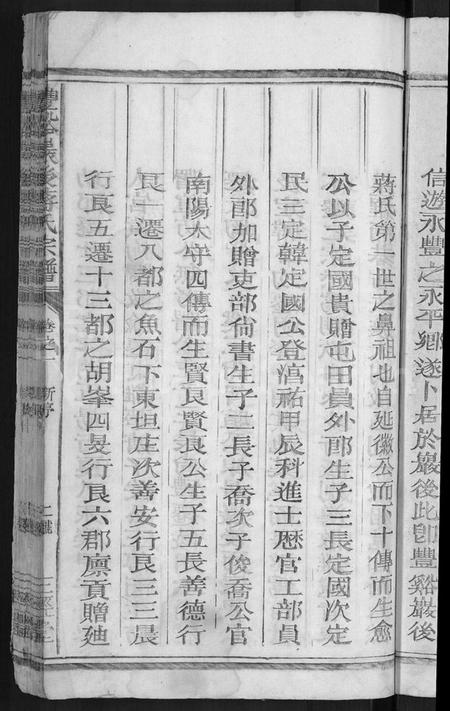 信遊永豐之永平鄉遂卜居於巖後此卽豐谿巖後
蔣氏第一世之鼻祖也自延徽公而下十傳而生愈
公以子定國貴贈屯田員外郎生子三長定國次定
民三定韓定國公登淳祐甲辰科進士歷官工部員
外郎加贈吏部尙書生子二長子喬次子俊喬公官
南陽太守四傳而生賢良賢良公生子五長善德行
良一遷八都之魚石下東坦庄次善安行良三三晨
行良五遷十三都之胡峯四旻行良六郡廩貢贈廸
豐谿巖後蔣氏宗譜 卷之一 新序